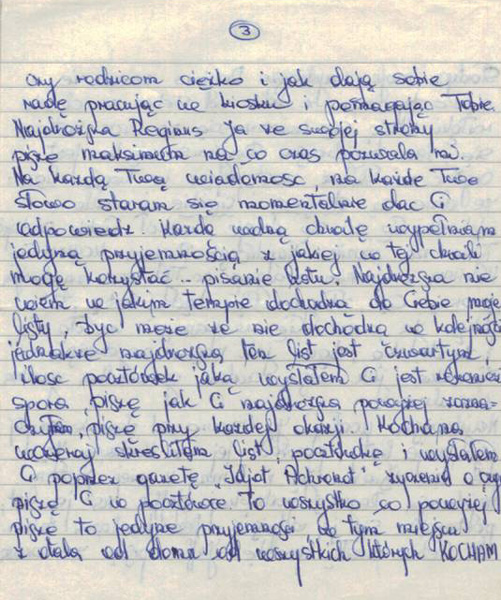 3
czy rodzicom ciężko i jak dają sobie
radę pracując w kiosku i pomagając Tobie
Najdroższa Regians. Ja ze swojej strony
piszę maksimum na co czas pozwala mi.
Na każdą Twą wiadomość, na każde Twe
słowo staram się momentalnie dać Ci
odpowiedź. Każdą wolną chwilę wypełniam
jedyną przyjemnością z jakiej w tej chwili
mogę korzystać.. pisanie listu. Najdroższa nie
wiem w jakim tempie dochodzą do Ciebie moje
listy, być może że nie dochodzą w kolejności
jednakże najdroższa ten list jest czwartym,
ilość pocztówek jaką wysłałem Ci jest również
spora, piszę jak Ci najdroższa powyżej zazna-
czyłem, piszę przy każdej okazji. Kochana
wczoraj skreśliłem list, pocztówkę i wysłałem
Ci poprzez gazetę życzenia o czym
piszę Ci w pocztówce. To wszystko co powyżej
piszę to jedyne przyjemności w tym miejscu
z dala od domu od wszystkich których KOCHAM